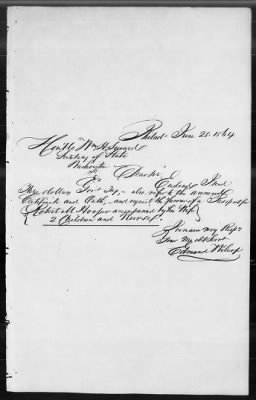 Philad. June 28. 1864
Honble Wm H Seward
Secretary of State
Washington
Dear Sir
Enclosed find
five dollars Gov't Tax, - also refer to the annexed
Certificate and Oath, - and request the favor of a Passport for
Robert M Hooper accompanied by his Wife
2 Children and Nurse.
I remain very Respy
Your Obt Servt
Edmund Wilcox